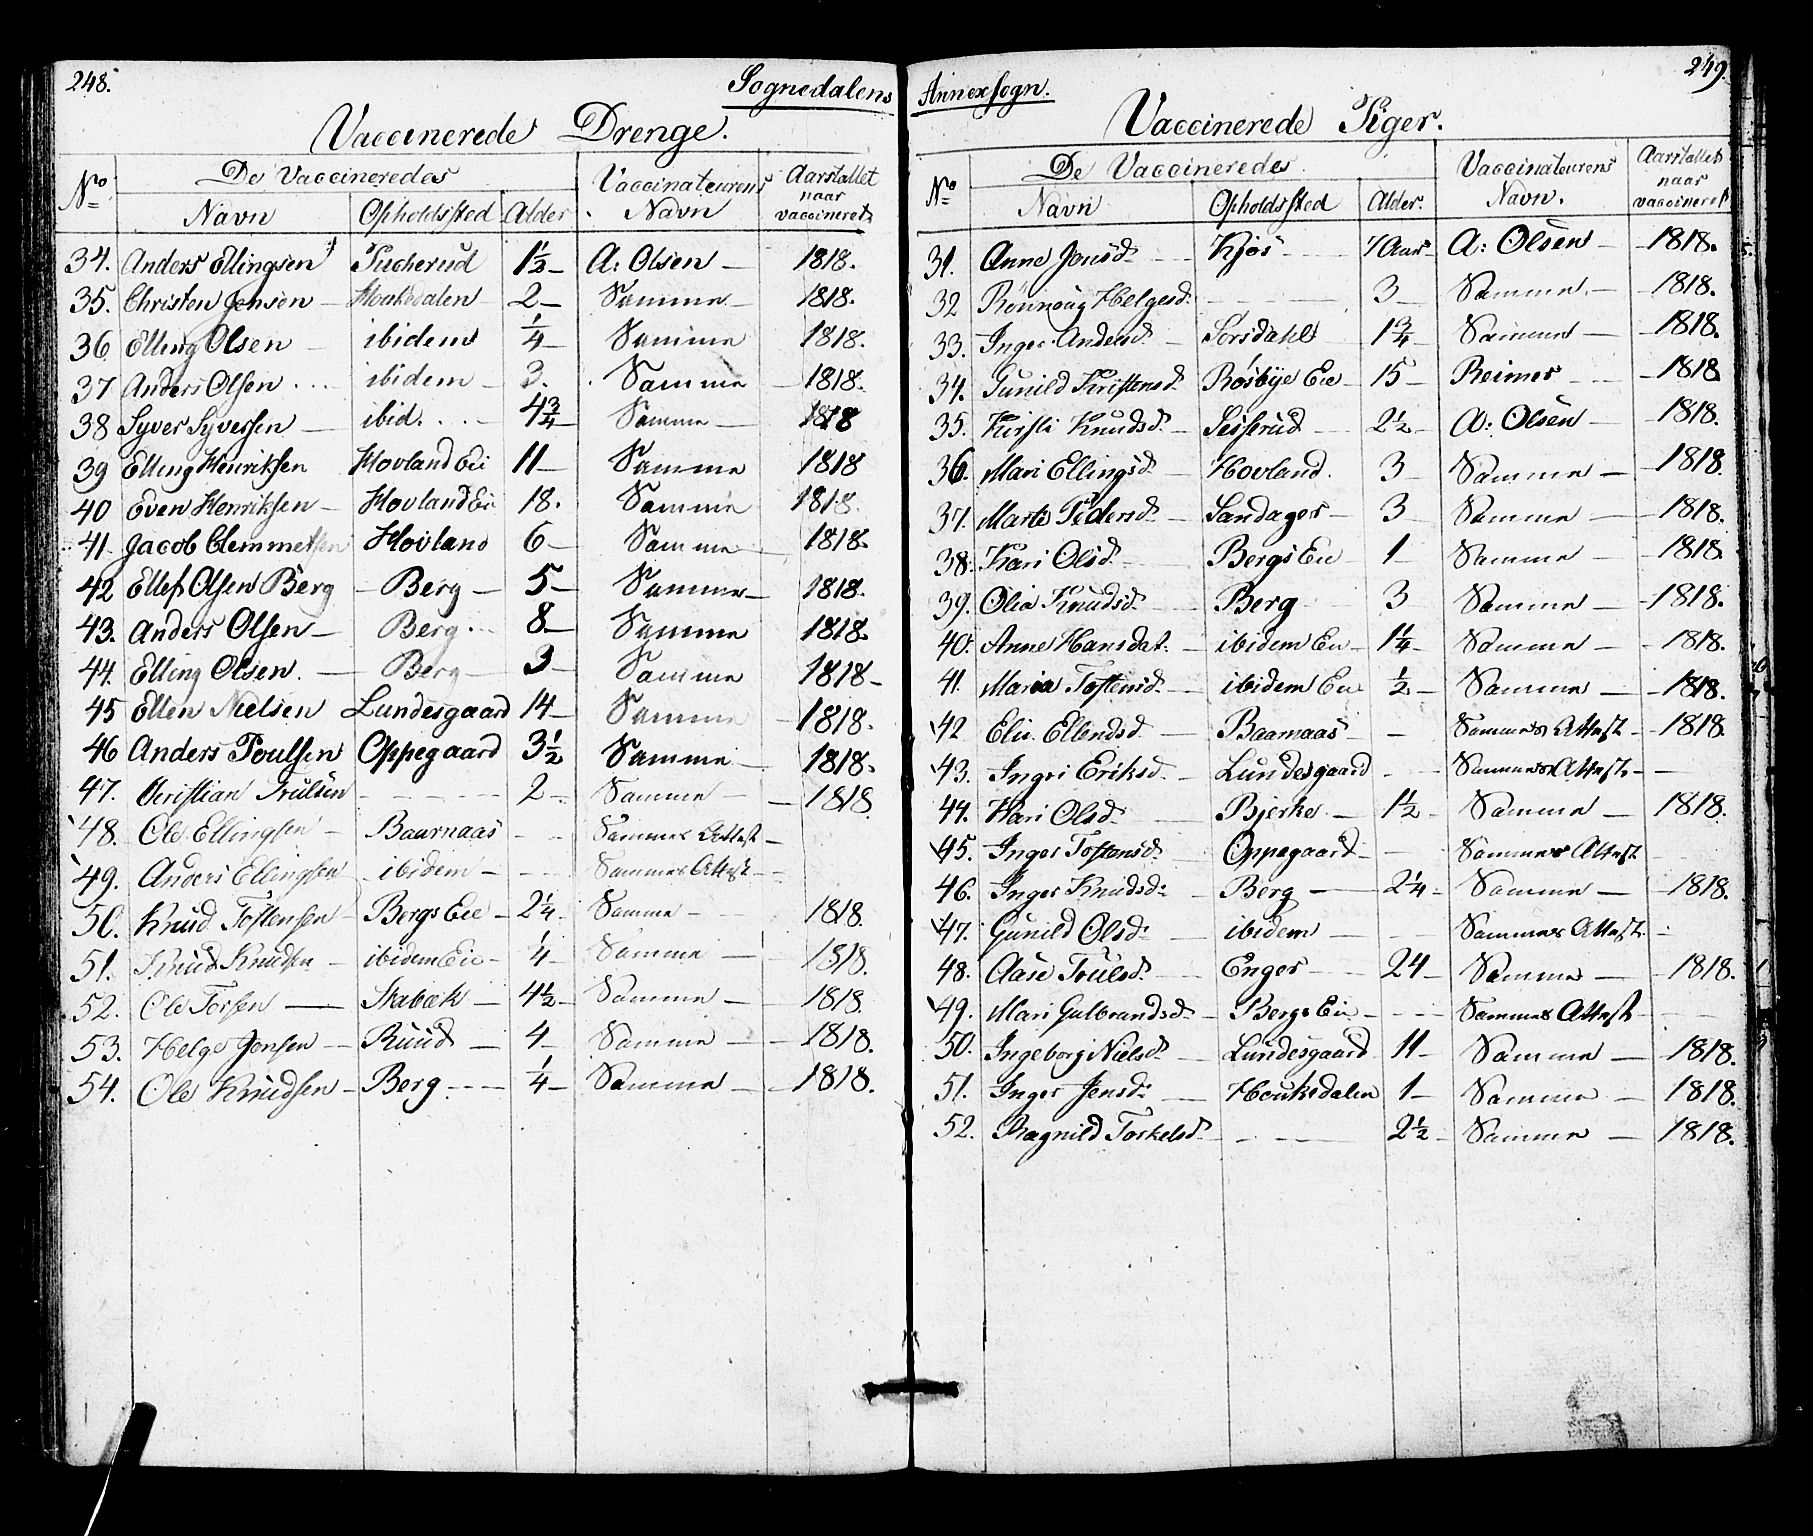 248.
Sognedalens
Vaccinerede Drenge.
No
De Vaccineredes
Vaccinateurens
Navn
Aarstallet
naar
vaccineret
Navn Opholdssted Alder
34. Anders Ellingsen Tucherud 1½ A: Olsen 1818.
35. Christen Jensen Houkedalen 2 Samme 1818.
36 Elling Olsen ibidem ¼ Samme 1818.
37 Anders Olsen ibidem 3. Samme 1818.
38 Syver Syversen ibid. 4¾ Samme 1818
39 Elling Henriksen Hovland Eie 11 Samme 1818
40 Even Henriksen Hovland Ei 18. Samme 1818.
41. Jacob Clemmetsen Hovland 6 Samme 1818.
42 Ellef Olsen Berg Berg 5 Samme 1818.
43. Anders Olsen Berg 8 Samme 1818.
44. Elling Olsen. Berg 3 Samme 1818
45 Ellen Nielsen Lundesgaard 14 Samme 1818.
46 Anders Poulsen Oppegaard 3½ Samme 1818.
47. Christian Trulsen 2 Samme 1818
48. Ole Ellingsen Baarnaas Sammes Attest
49. Anders Ellingsen ibidem Sammes Attest
50. Knud Tostensen Bergs Eie 2¼ Samme 1818.
51. Knud Knudsen ibidem Eie ¼ Samme 1818.
52. Ole Torsen Stabæk 4½ Samme 1818.
53. Helge Jensen Ruud 4 Samme 1818.
54. Ole Knudsen Berg ¼ Samme 1818.
249.
Annexsogn.
Vaccinerede Piger.
No
De Vaccinerede
Vaccinateurens
Navn.
Aarstallet
naar
vaccineret
Navn Opholdssted Alder.
31. Anne Jensd. Kjos Aar A: Olsen 1818.
32 Rønnoug Helgesd. 3 Samme 1818.
33. Inger Andersd. Sorsdahl 1¾ Samme 1818.
34. Gunild Kristensd. Røsbye Eie 15 Reimer 1818
35. Kirsti Knudsd. Seiserud 2½ A: Olsen 1818.
36. Mari Ellingsd. Hovland. 3 Samme 1818.
37. Marte Pedersd. Sandager 3 Samme 1818.
38. Kari Olsd. Bergs Eie 1 Samme 1818.
39. Olia Knudsd. Berg 3 Samme 1818.
40. Anne Hansdat. ibidem Eie 1¼ Samme 1818.
41. Maria Tostensd. ibidem Eie ½ Samme 1818.
42 Elie Ellendsd. Baarnaas Sammes Attest 1818.
43. Ingri Eriksd. Lundesgaard Sammes Attest
44. Kari Olsd. Bjerke 1½ Samme 1818.
45. Inger Tostensd. Oppegaard Sammes Attest
46. Inger Knudsd. Berg 2¼ Samme 1818.
47. Gunild Olsd. ibidem Sammes Attest
48. Aase Trulsd. Enger 24 Samme 1818.
49. Mari Gulbrandsd. Bergs Eie Sammes Attest
50. Ingeborg Nielsd. Lundesgaard 11 Samme 1818.
51. Inger Jensd. Houkedalen 1 Samme 1818.
52. Ragnild Torkelsd. 2½ Samme 1818.